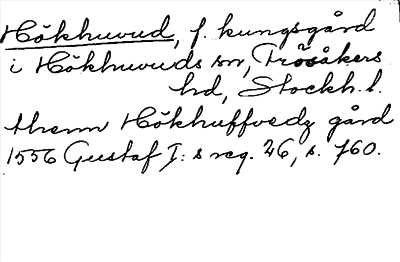 Hökhuvud, f. kungsgård
i Hökhuvuds sn, Frösåkers
hd, Stockh. l.
thenn Hökhuffvedz gård
1556 Gustaf I:s reg. 26, s. 760.